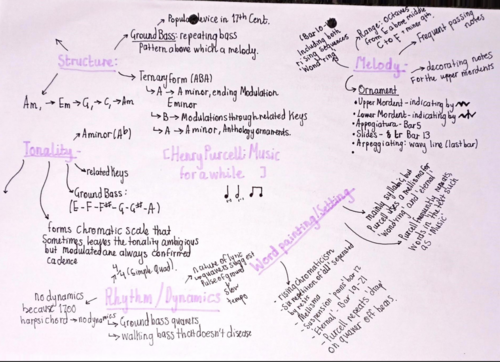 Popular device in 17th Cent.
Ground Bass: repeating bass
Pattern above which a melody.
Structure:
Ternary Form (ABA)
A → A minor, ending Modulation
E minor
B → Modulations through related Keys
A → A minor, Anthology ornaments.
Am, → Em → G, → C, → Am
(Bar 10-
Including both
rising sequences
Wondring
Range: octaves
from E above middle
C to F + minor 9th.
Frequent passing
notes
Melody-
decorating notes
For the upper mordents
Ornament
Upper Mordent - indicating by
Lower Mordent - indicating by
Appogiatura - Bar 5
Slides - Bar 13
Arpeggiating: wavy line (last bar)
Tonality-
A minor (Ab)
related Keys
Ground Bass:
(E-F-F#-G-G#-A)
forms Chromatic scale that
Sometimes leaves the tonality ambigious
but modulated are always confirmed
cadence
[Henry Purcell: Music
for a while ]
Word painting/Setting
mainly syllabic but
Purcell uses a mellisma for
'wondring' and 'eternal'
Purcell frequently repeats
words in the text such
as 'Music'
by rests
Mellisma
Suspension 'pains' bar 12
'Eternal' - Bar 19-21
Purcell repeats 'drop'
on quaver off beats
Rhythm/Dynamics
4/4 (simple Quad).
nature of lyric
quavers suggest
Pulse of ground
slow
tempo
no dynamics
because 1700
harpsichord → no dynamics
Ground bass quavers
walking bass that doesn't disease